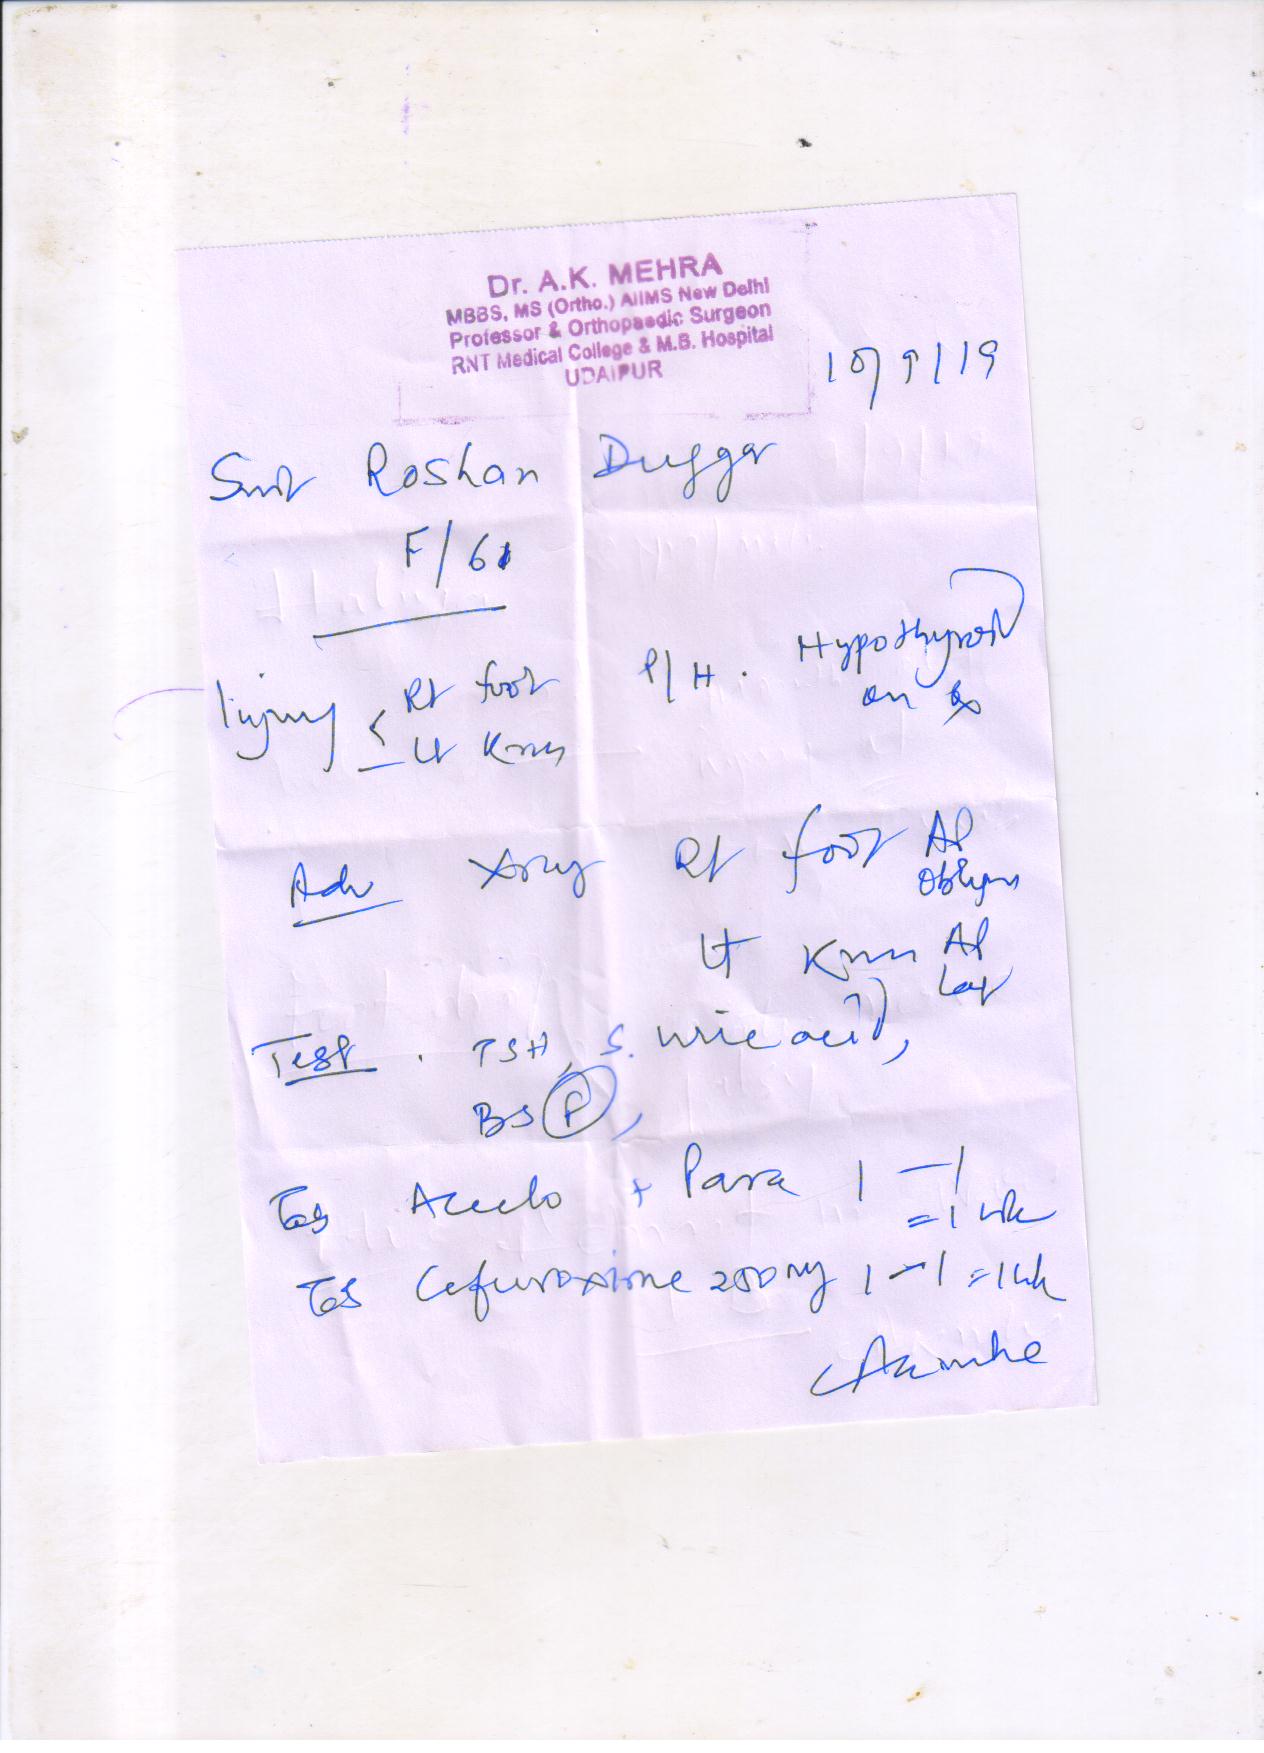 Dr. A.K. MEHRA
MBBS, MS (Ortho.) AIIMS New Delhi
Professor & Orthopaedic Surgeon
RNT Medical College & M.B. Hospital
UDAIPUR
10/9/19
Smt Roshan Duggar
F/61
Injury < Rt foot P/H. Hypothyroid
Lt Knee on Rx
Adv Xray Rt foot AP
Oblique
Lt Knee AP
Lat
Test . TSH, S. Uric acid,
BS (P),
Tab Aceclo + Para 1 — 1
= 1 wk
Tab Cefuroxime 250 mg 1 — 1 = 1 wk